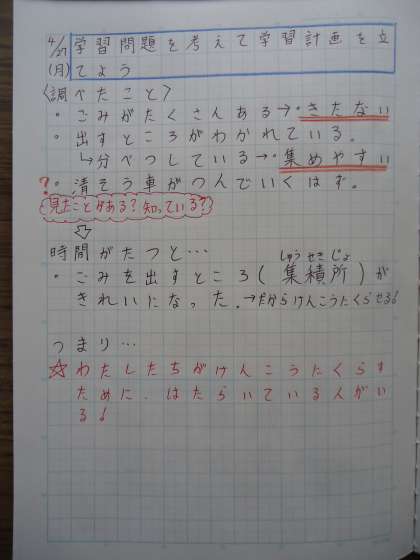 4/27 学習問題を考えて学習計画を立
(月) てよう
〈調べたこと〉
・ごみがたくさんある→・きたない
・出すところがわかれている。
↳分べつしている→・集めやすい
?・清そう車がつんでいくはず。
見たことがある?知っている?
⇩
時間がたつと…
しゅうせきじょ
・ごみを出すところ(集積所)が
きれいになった。→だからけんこうにくらせる!
つまり…
☆わたしたちがけんこうにくらす
ために、はたらいている人がい
る!